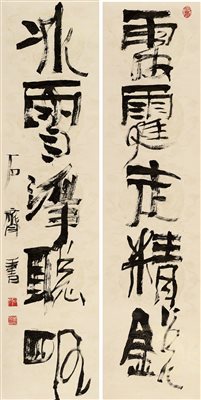 雷霆走精銳
冰雪淨聰明
石齊書